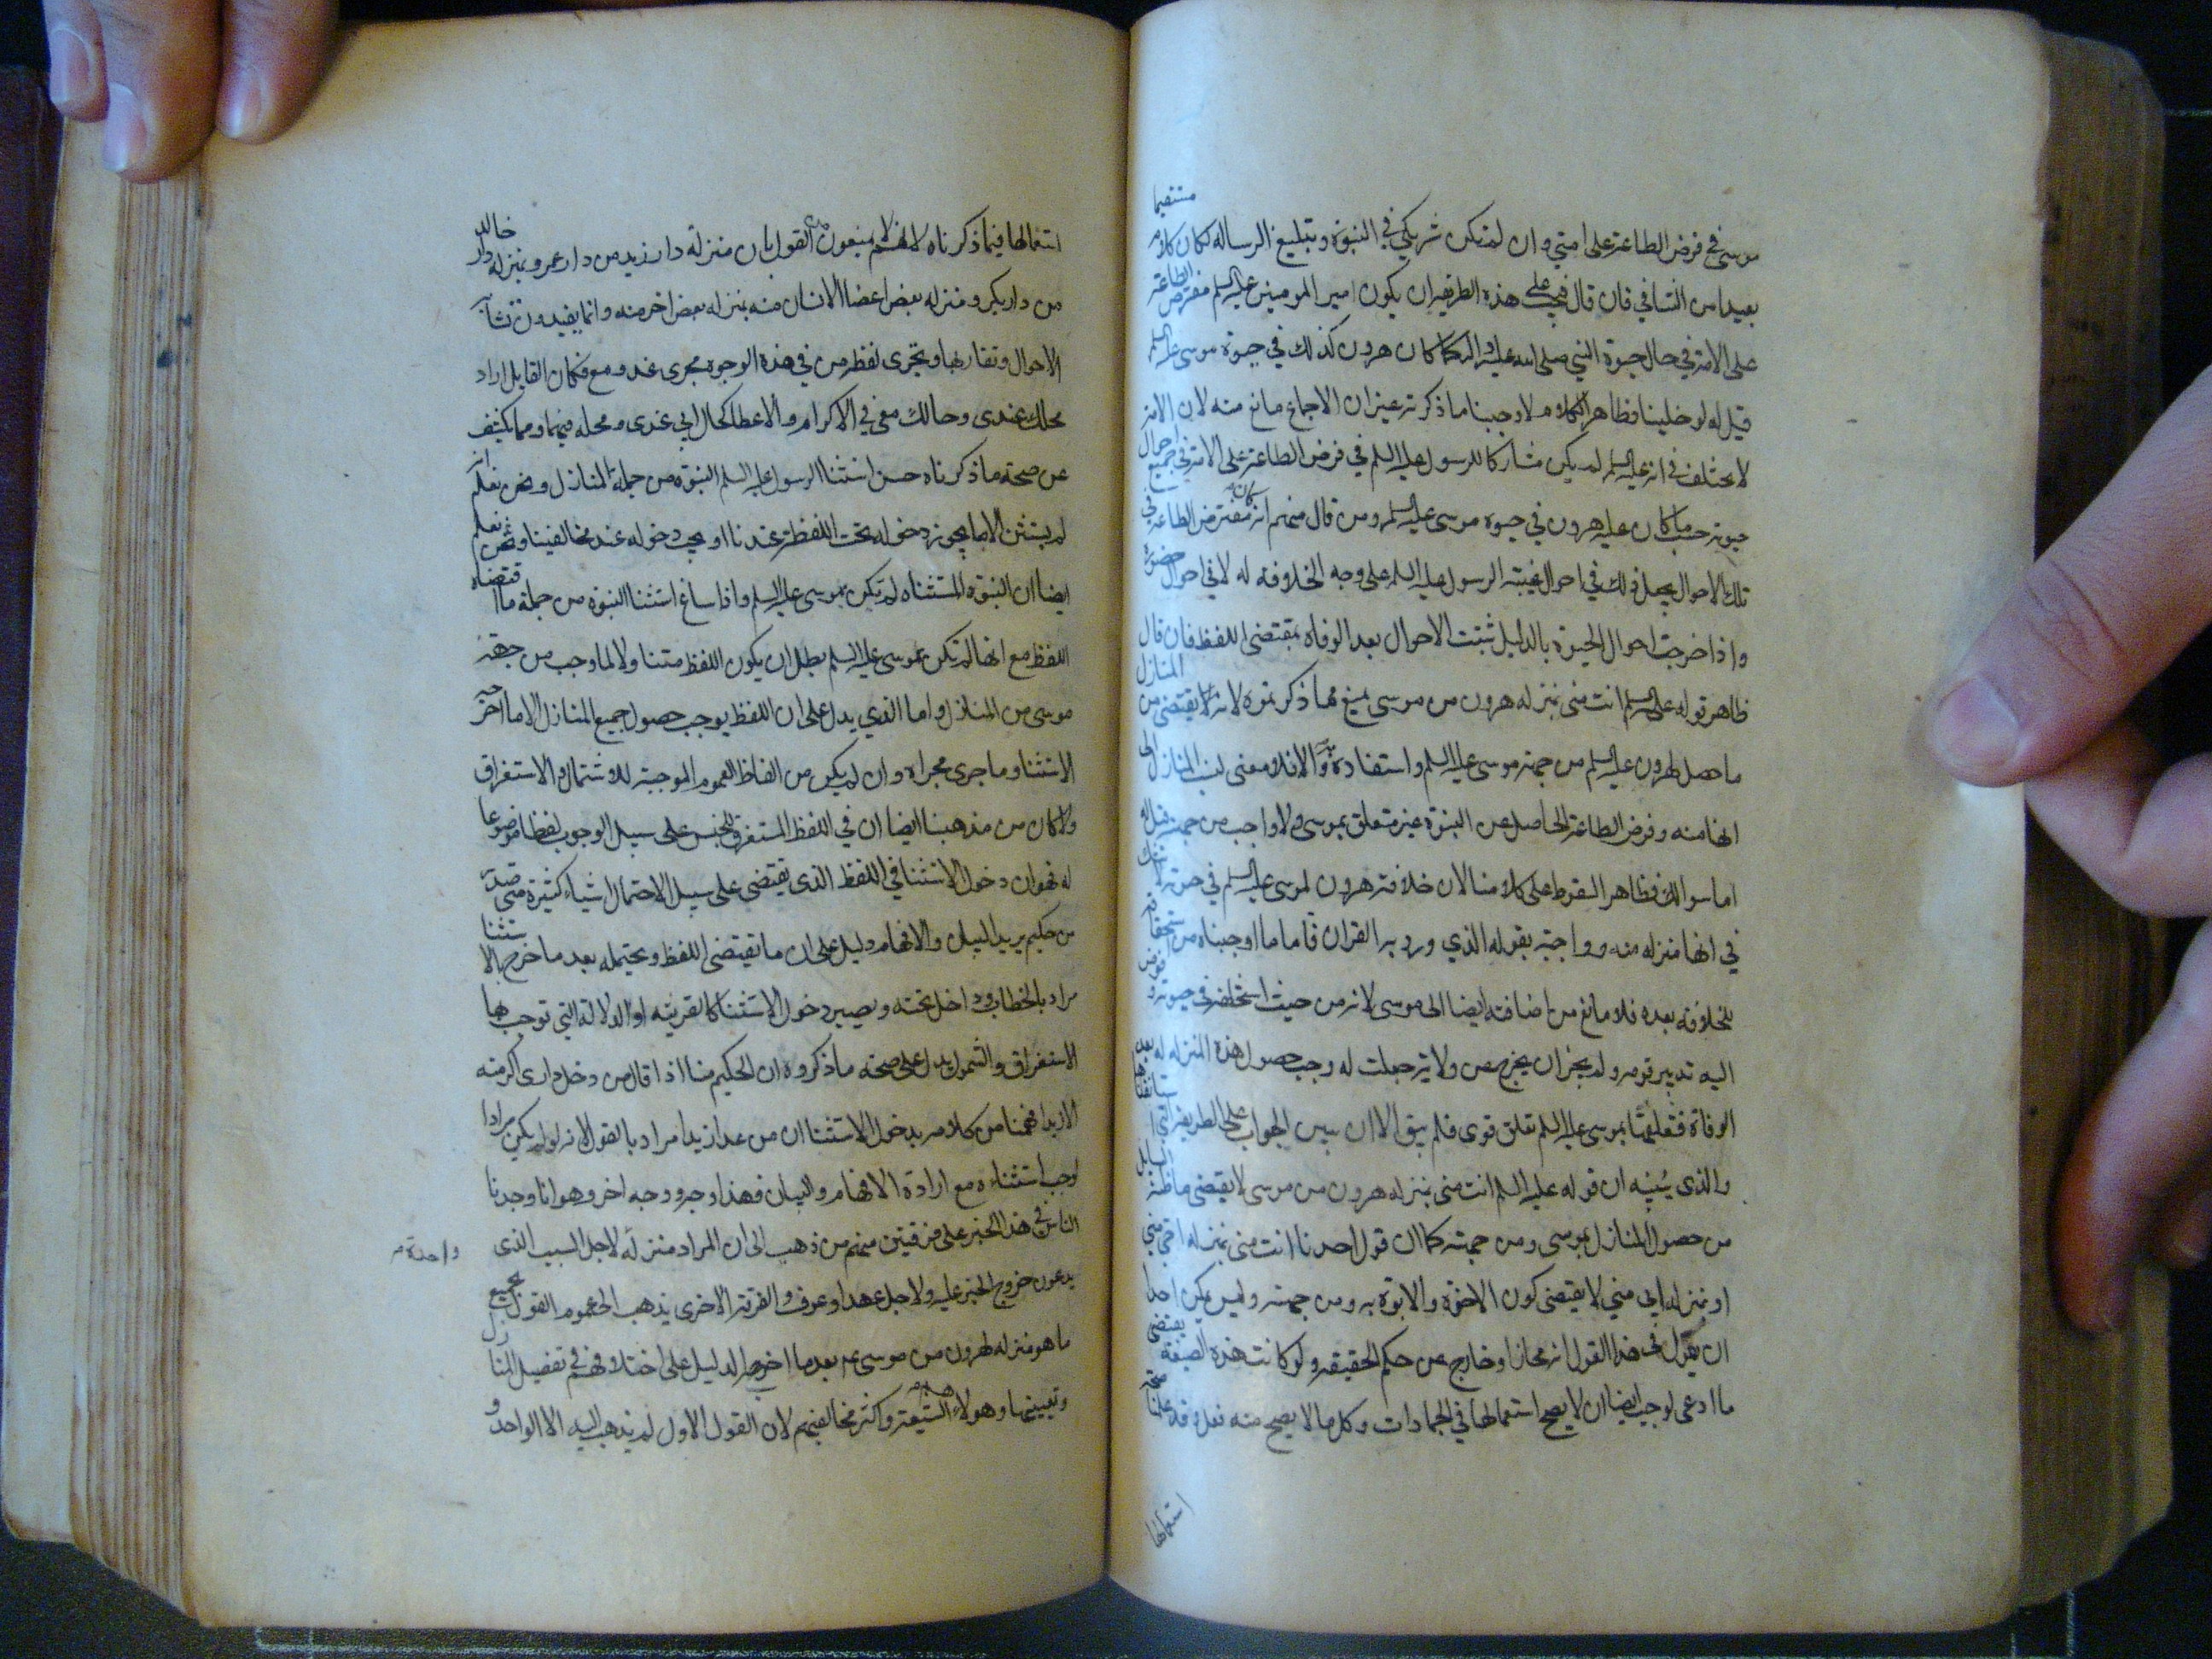 موسى في فرض الطاعة على امتي وان لم تكن شريكي في النبوة وبتبليغ الرسالة لكان كلاما مستقيما
بعيدا من التنافي فان قال فيجب على هذه الطريقة ان يكون امير المومنين عليه السلم مفترض الطاعة
على الامة في حال حيوة النبي صلى الله عليه واله كما كان هرون كذلك في حيوة موسى عليه السلم
قيل له لو خلينا وظاهر الكلام لاوجبنا ما ذكرته غير ان الاجماع مانع منه لان الامة
لا تختلف في انه عليه السلم لم يكن مشاركا للرسول عليه السلم في فرض الطاعة على الامة في جميع احوال
حيوته حسب ما كان عليه هرون في حيوة موسى عليه السلم ومن قال منهم انه كان مفترض الطاعة في
تلك الاحوال يجعل ذلك في احوال غيبة الرسول عليه السلم على وجه الخلافة له لا في احوال حضوره
واذا خرجت احوال الحيوة بالدليل ثبتت الاحوال بعد الوفاة بمقتضى اللفظ فان قال
ظاهر قوله عليه السلم انت مني بمنزله هرون من موسى يمنع مما ذكرتموه لانه لا يقتضي من المنازل
ما حصل لهرون عليه السلم من جهة موسى عليه السلم واستفاده به والا فلا معنى لنسب المنازل الى
انها منه وفرض الطاعة الحاصل عن النبوة غير متعلق بموسى ولا واجب من جهته قيل له
اما سوالك فظاهر السقوط على كلامنا لان خلافة هرون لموسى عليه السلم في حيوته لا شك
في انها منزله منه وواجبة بقوله الذي ورد به القران فاما ما اوجبناه من استحقاقه
للخلافة بعده فلا مانع من اضافته ايضا الى موسى لانه من حيث استخلفه في حيوته وفوض
اليه تدبير قومه ولم يجز ان يخرج عن ولاية جعلت له وجب حصول هذه المنزله له بعد
الوفاة فتعلقها بموسى عليه السلم تعلق قوي فلم يبق الا ان يبين الجواب على الطريقة التي استانفناها
والذي يبينه ان قوله عليه السلم انت مني بمنزله هرون من موسى لا يقتضي ما ظنه السايل
من حصول المنازل بموسى ومن جهته كما ان قول احدنا انت مني بمنزله اخي مني
او بمنزله ابي مني لا يقتضي كون الاخوة والابوة به ومن جهته وليس يمكن احدا
ان يقول في هذا القول انه مجاز او خارج عن حكم الحقيقه ولو كانت هذه الصيغة يقتضي
ما ادعى لوجب ايضا ان لا يصح استعمالها في الجمادات وكل ما لا يصح منه فعل وقد علمنا صحة
استعمالها
استعمالها فيما ذكرناه لانهم لا يمنعون من القول بان منزلة دار زيد من دار عمرو بمنزله دار خالد
من دار بكر ومنزله بعض اعضا الانسان منه بمنزله بعض اخر منه وانما يفيدون تشابه
الاحوال وتقاربها ويجري لفظ من في هذه الوجوه مجرى عند ومع فكان القايل اراد
محلك عندي وحالك معي في الاكرام والاعطا كحال ابي عندي ومحله فيهما ومما يكشف
عن صحة ما ذكرناه حسن استثنا الرسول عليه السلم النبوة من جملة المنازل ونحن نعلم انه
لم يستثن الا ما يجوز دخوله تحت اللفظ عندنا او يجب دخوله عند مخالفينا ونحن نعلم
ايضا ان النبوة المستثناه لم تكن بموسى عليه السلم واذا ساغ استثنا النبوة من جملة ما اقتضاه
اللفظ مع انها لم تكن بموسى عليه السلم بطل ان يكون اللفظ متناولا لما وجب من جهة
موسى من المنازل واما الذي يدل على ان اللفظ يوجب حصول جميع المنازل الا ما اخرجه
الاستثنا وما جرى مجراه وان لم يكن من الفاظ العموم الموجبة للاشتمال والاستغراق
ولا كان من مذهبنا ايضا ان في اللفظ المستغرق للجنس على سبيل الوجوب لفظا موضوعا
له فهو ان دخول الاستثنا في اللفظ الذي يقتضي على سبيل الاحتمال اشياء كثيرة متى صدر
من حكيم يريد البيان والافهام دليل على ان ما يقتضي اللفظ ويحتمله بعد ما خرج بالاستثنا
مراد بالخطاب وداخل تحته ويصير دخول الاستثنا كالقرينه او الدلالة التي توجب بها
الاستغراق والشمول يدل على صحة ما ذكروه ان الحكيم منا اذا قال من دخل داري اكرمته
الا زيدا فهمنا من كلامه بدخول الاستثنا ان من عدا زيدا مراد بالقول لانه لو لم يكن مرادا
لوجب استثناءه مع ارادة الافهام والبيان فهذا وجه ووجه اخر وهو انا وجدنا
الناس في هذا الخبر على فرقتين منهم من ذهب الى ان المراد منزلة لاجل السبب الذي
واحدة
يدعون خروج الخبر عليه ولاجل عهد او عرف والفرقة الاخرى يذهب الى عموم القول بجميع
ما هو منزله لهرون من موسى بعد ما اخرجه الدليل على اختلافهم في تفصيل المنازل
وتعيينها وهولاء هم الشيعة واكثر مخالفيهم لان القول الاول لم يذهب اليه الا الواحد و